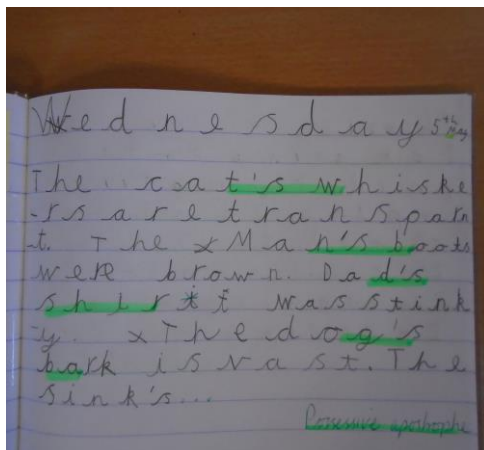 Wednesday 5th May
The cat's whiske
-rs are transparn
-t. The x Man's boots
were brown. Dad's
shirt t was stink
-y. x The dog's
bark is vast. The
sink's...
Possessive apostrophe